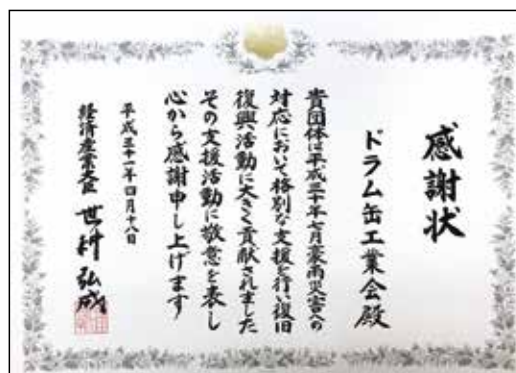 感謝状
ドラム缶工業会殿
貴団体は平成三十年七月豪雨災害への
対応において格別な支援を行い復旧
復興活動に大きく貢献されました
その支援活動に敬意を表し
心から感謝申し上げます
平成三十一年四月十八日
経済産業大臣 世耕弘成